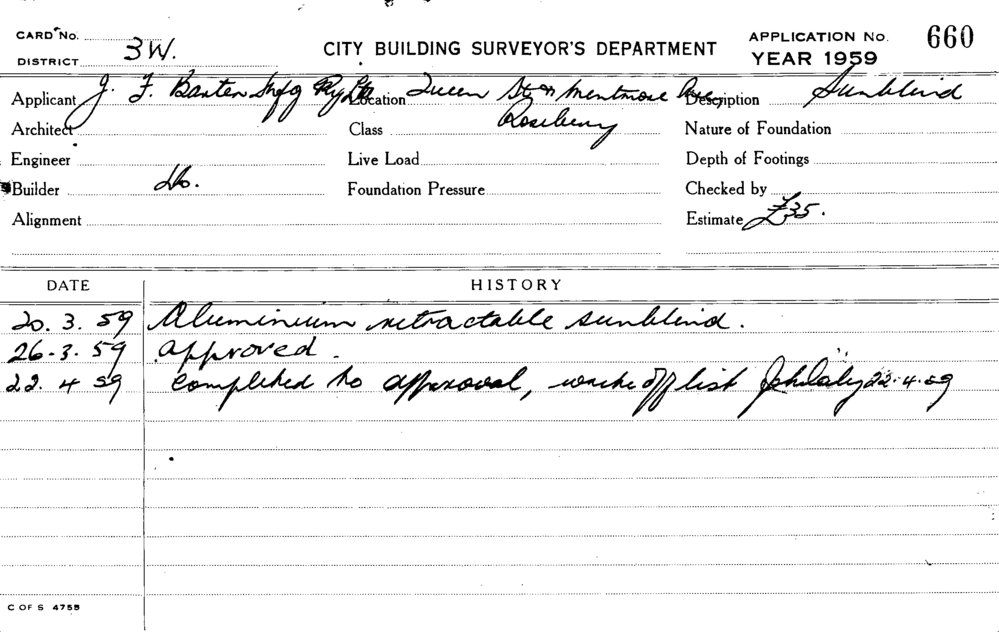 CARD No.
DISTRICT 3W.
CITY BUILDING SURVEYOR'S DEPARTMENT
APPLICATION No. 660
YEAR 1959
Applicant J. F. Baxter Mfg Pty Ltd Location Queen St & Mentmore Ave, Description Sunblind
Architect Class Rosebery Nature of Foundation
Engineer Live Load Depth of Footings
Builder do. Foundation Pressure Checked by
Alignment Estimate £35.
DATE HISTORY
20. 3. 59 Aluminium retractable sunblind.
26-3. 59 approved.
22. 4 59 completed to approval, off list 22.4.59
C OF S 4755